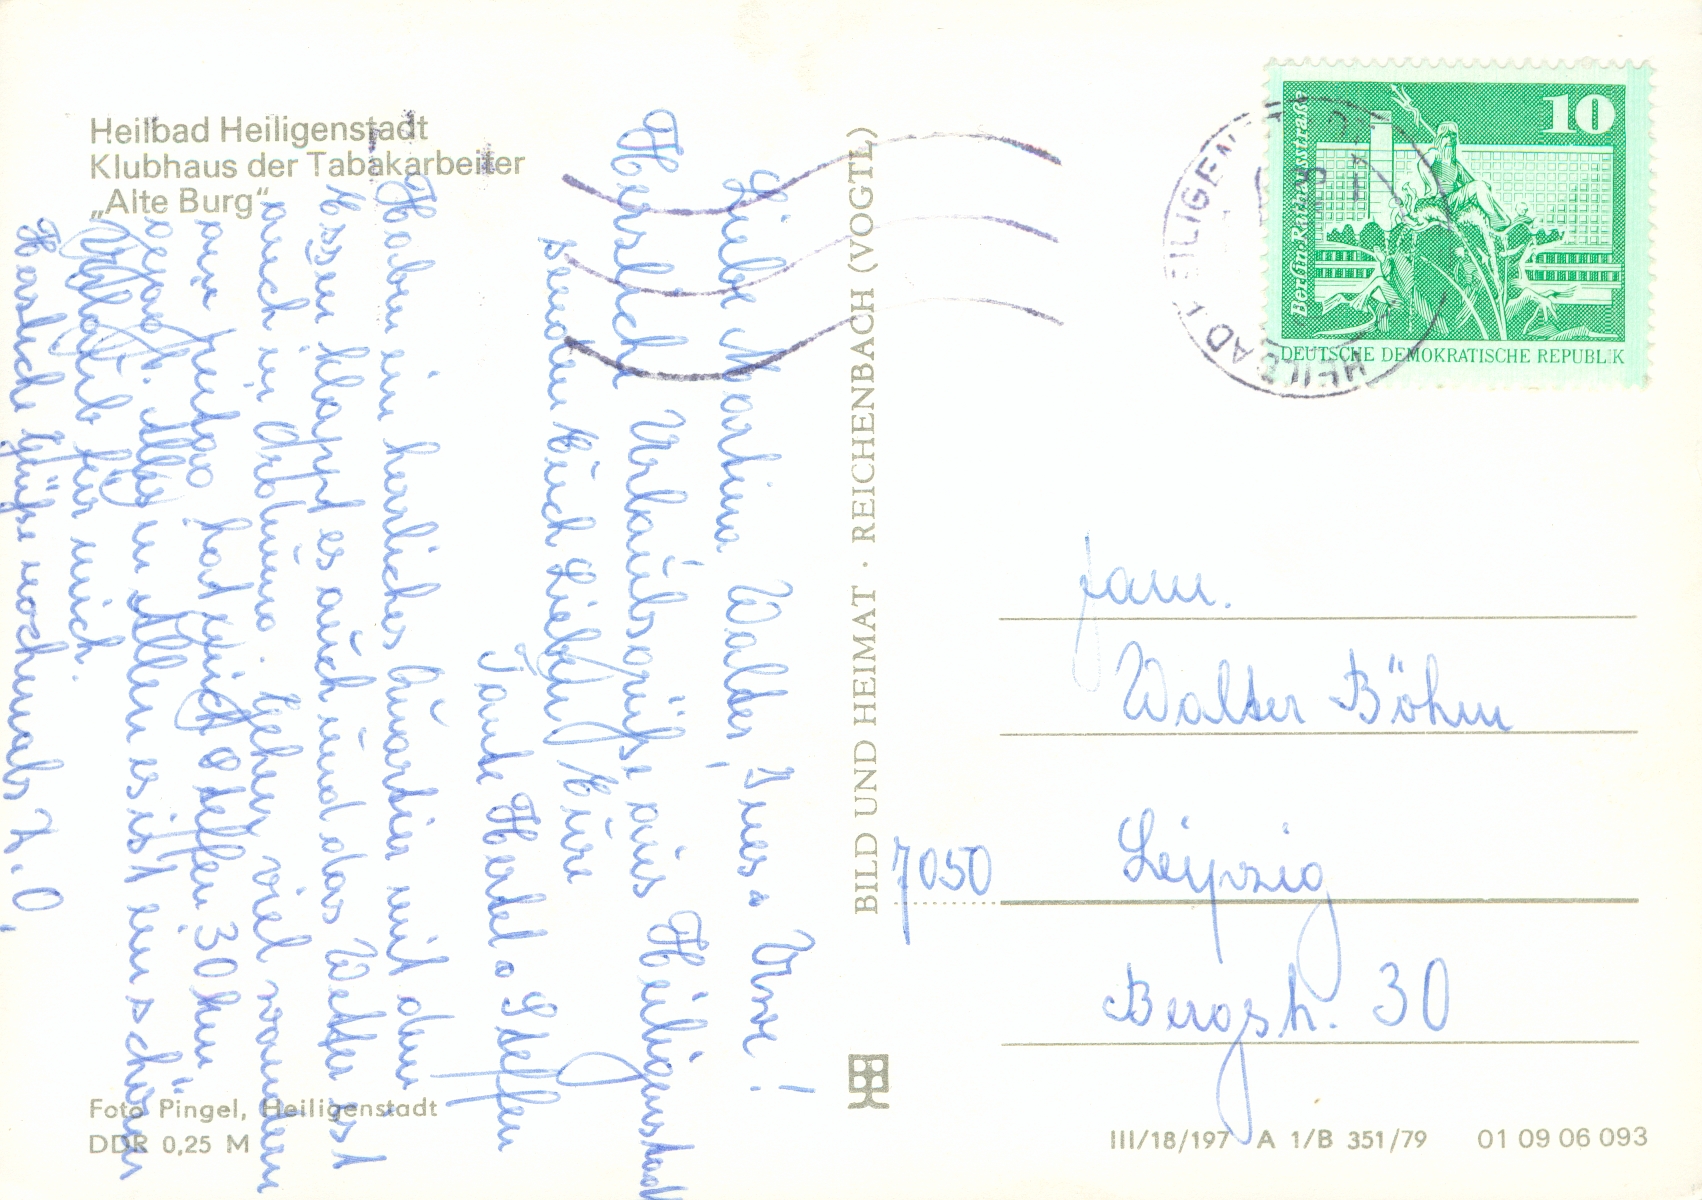 Heilbad Heiligenstadt
Klubhaus der Tabakarbeiter
„Alte Burg“
Liebe Martina, Walter, Ines u. Uwe!
Herzlich Urlaubsgrüße aus Heiligenstadt
senden Euch Lieben Eure
Tante Herta u. Steffen
Haben ein herrliches Quartier mit dem
Essen klappt es auch und das Wetter ist
auch in Ordnung. Gehen viel wandern
am Freitag hat mich Steffen 30 km
gejagt. Alles in Allem es ist ein schöner
Urlaub für mich.
Herzliche Grüße nochmals T. O.
Foto Pingel, Heiligenstadt
DDR 0,25 M
BILD UND HEIMAT · REICHENBACH (VOGTL)
10
Berlin-Rathausstraße
DEUTSCHE DEMOKRATISCHE REPUBLIK
HEILBAD HEILIGEN
Fam.
Walter Böhm
7050 Leipzig
Bergstr. 30
III/18/197 A 1/B 351/79 01 09 06 093